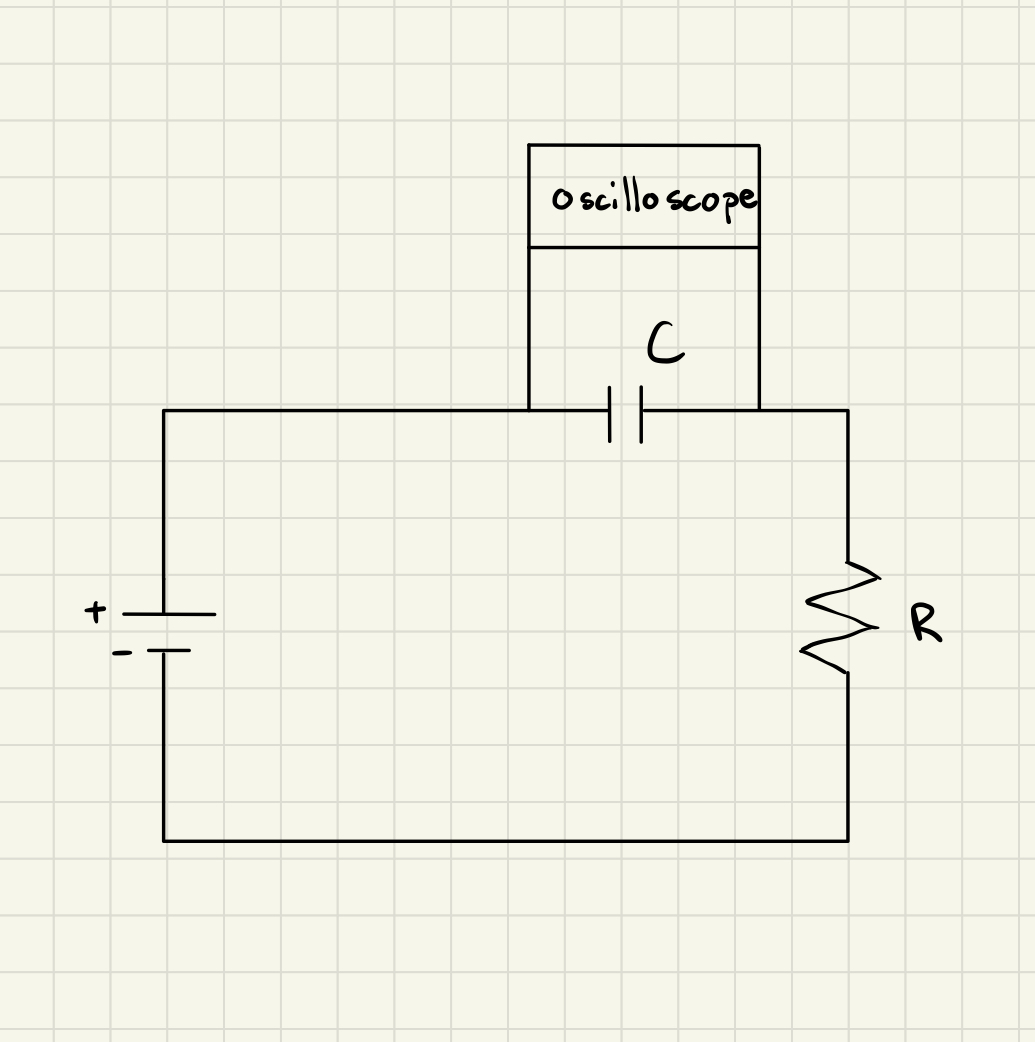 oscilloscope
C
+
-
R